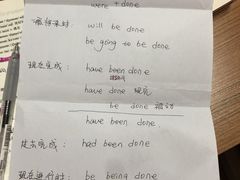 were + done
一般将来时: will be done
be going to be done
现在完成: have been done
have done 现完
be done 被动
have been done.
过去完成: had been done
现在进行时: be being done